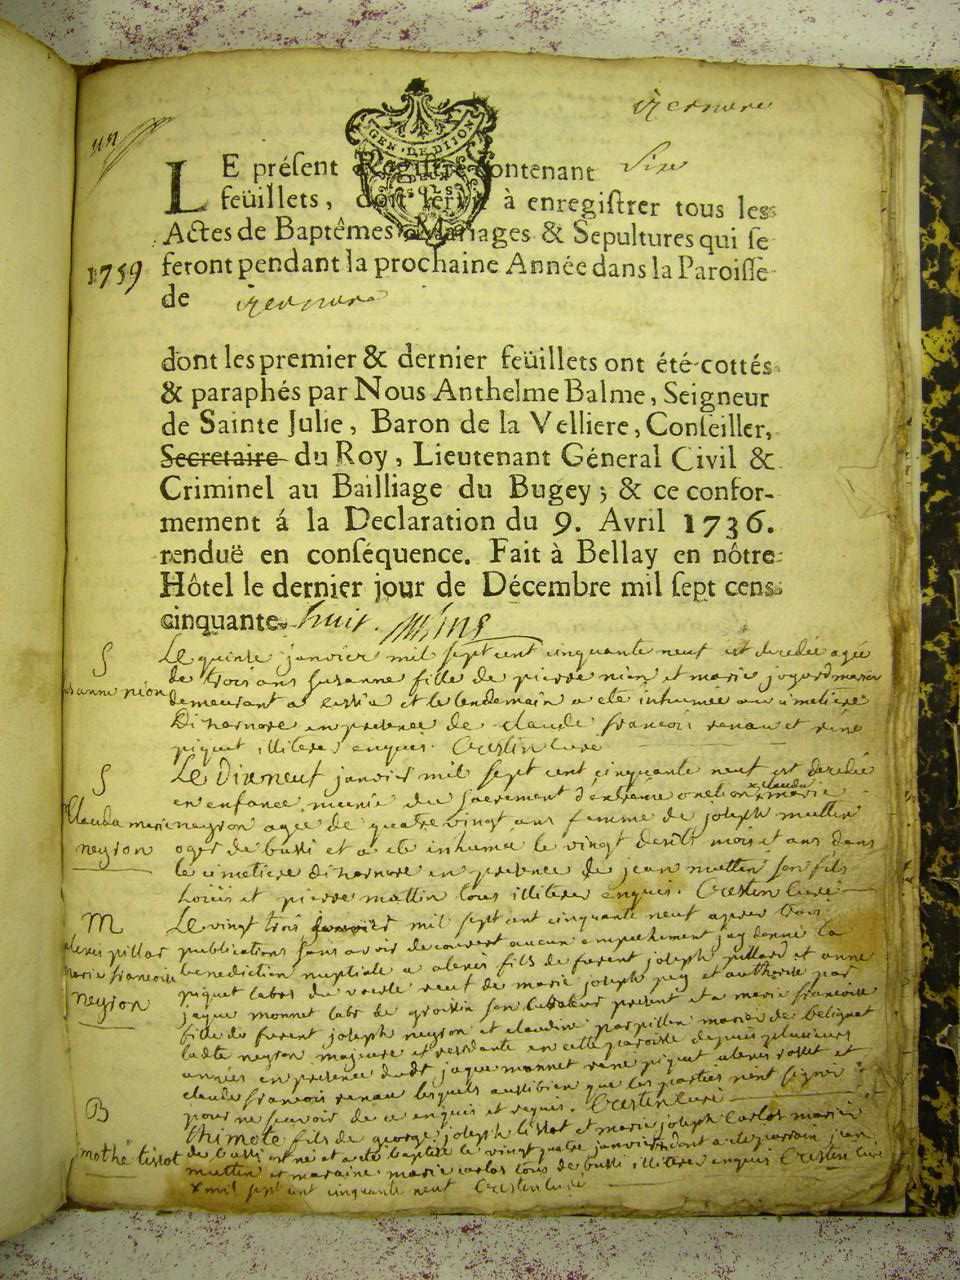 izernore
un
GEN. DE DIJON
LE présent Registre contenant Six
feüillets, doit servir à enregistrer tous les
Actes de Baptêmes Mariages & Sepultures qui se
1759
feront pendant la prochaine Année dans la Paroisse
de izernore
dont les premier & dernier feüillets ont été cottés
& paraphés par Nous Anthelme Balme, Seigneur
de Sainte Julie, Baron de la Velliere, Conseiller,
Secretaire du Roy, Lieutenant Géneral Civil &
Criminel au Bailliage du Bugey; & ce confor-
mement á la Declaration du 9. Avril 1736.
renduë en conséquence. Fait à Bellay en nôtre
Hôtel le dernier jour de Décembre mil sept cens
cinquante huit.
S
Le quinze janvier mil sept cent cinquante neuf est decedée agée
de trois ans suzanne fille de pierre nion et marie joyard mariés
anne nion
demeurant a et le lendemain a eté inhumée au cimetiere
Dizernore en presence de claude francois renau et rené
piquet illiteres enquis. Crestin curé
S
Le Dixneuf janvier mil sept cent cinquante neuf est decedée
en enfance munie du sacrement d'extreme onction x clauda marie
Clauda marie
neyron agée de quatre vingt ans femme de joseph mattin
neyron
de bussi et a eté inhumée le vingt desdts mois et ans dans
le cimetiere dizernore en presence de jean mattin son fils
Louis et pierre mattin tous illiteres enquis. Crestin curé
M
Le vingt trois janvier mil sept cent cinquante neuf apres trois
alexis pillar
publications sans avoir decouvert aucun empechement jay donné la
marie francoise
benediction nuptiale a alexis fils de furent joseph pillard et anne
neyron
piquet labr de veuf de marie joseph puy et authorisé par
jaque monnet labr de groissia son curateur present et a marie francoise
fille de furent joseph neyron et claudine parpillon mariés de belignat
ladte neyron majeure et residante en cette paroisse depuis plusieurs
années en presence dudt jaque monnet rené piquet alexis rosset et
claude francois renau lesquels aussibien que les parties n'ont signer
pour ne scavoir de ce enquis et requis. Crestin curé
B
thimoté fils de george joseph tissot et marie joseph carlos mariés
mothé tissot
de bussi est né et a eté baptisé le vingt quatre janvier x dont a eté parrain jean
mattin et maraine marie carlos tous de bussi illiteres enquis Crestin curé
x mil sept cent cinquante neuf Crestin curé